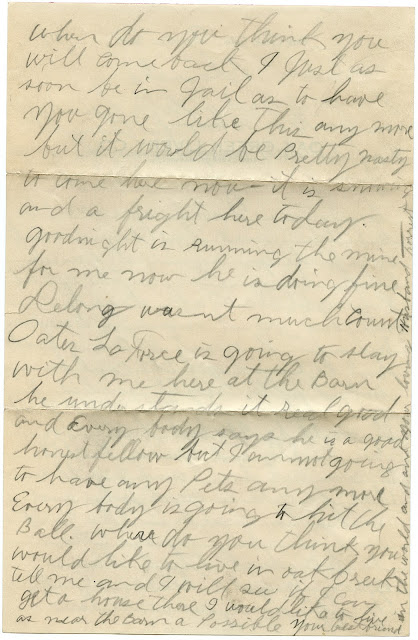 when do you think you
will come back I Just as
soon be in Jail as to have
you gone like this any more
but it would be Pretty nasty
to come here now it is
and a fright here today.
goodnight is running the mine
for me now he is doing fine
Lelong wasnt much Count
Oater La Force is going to stay
with me here at the Barn
he understands it real good
and Every body says he is a good
honest fellow but I am not going
to have any Pets any more
Every body is going to hit the
Ball. where do you think you
would like to live in oak Creek
tell me and I will see if I can
get a house there I would like to live
as near the Barn a Possible your best friend
in the world and your loving Husband